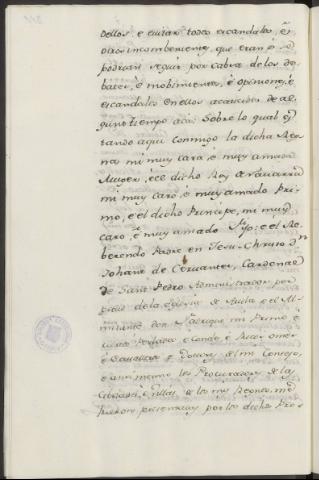 dellos, e evitar todos escandalos, e
otros incombenientes, que eran, e se
podrian seguir por cabsa de los de-
bates, è mobimientos, è opiniones, è
escandalos en ellos acaecidos de al-
gun tiempo acà: Sobre lo qual es-
tando aqui conmigo la dicha Rey-
na, mi muy cara, è muy amada
Muger, è el dicho Rey de Navarra
mi muy caro, è muy amado Pri-
mo, è el dicho Principe, mi muy
caro, è muy amado Fijo; e el Re-
berendo Padre en Jesu-Christo Dn
Johan de Cervantes, Cardenal
de Sant Pedro Administrador per-
petuo de la Eglesia de Avila, e el Al-
mirante don Fadrique mi Primo, è
Perlados, e Condes, è Ricos omes
è Caballeros, è Doctores del mi Consejo,
e ansimismo los Procuradores de las
Cibdades, è Villas de los mis Regnos, me
fueron por los dichos